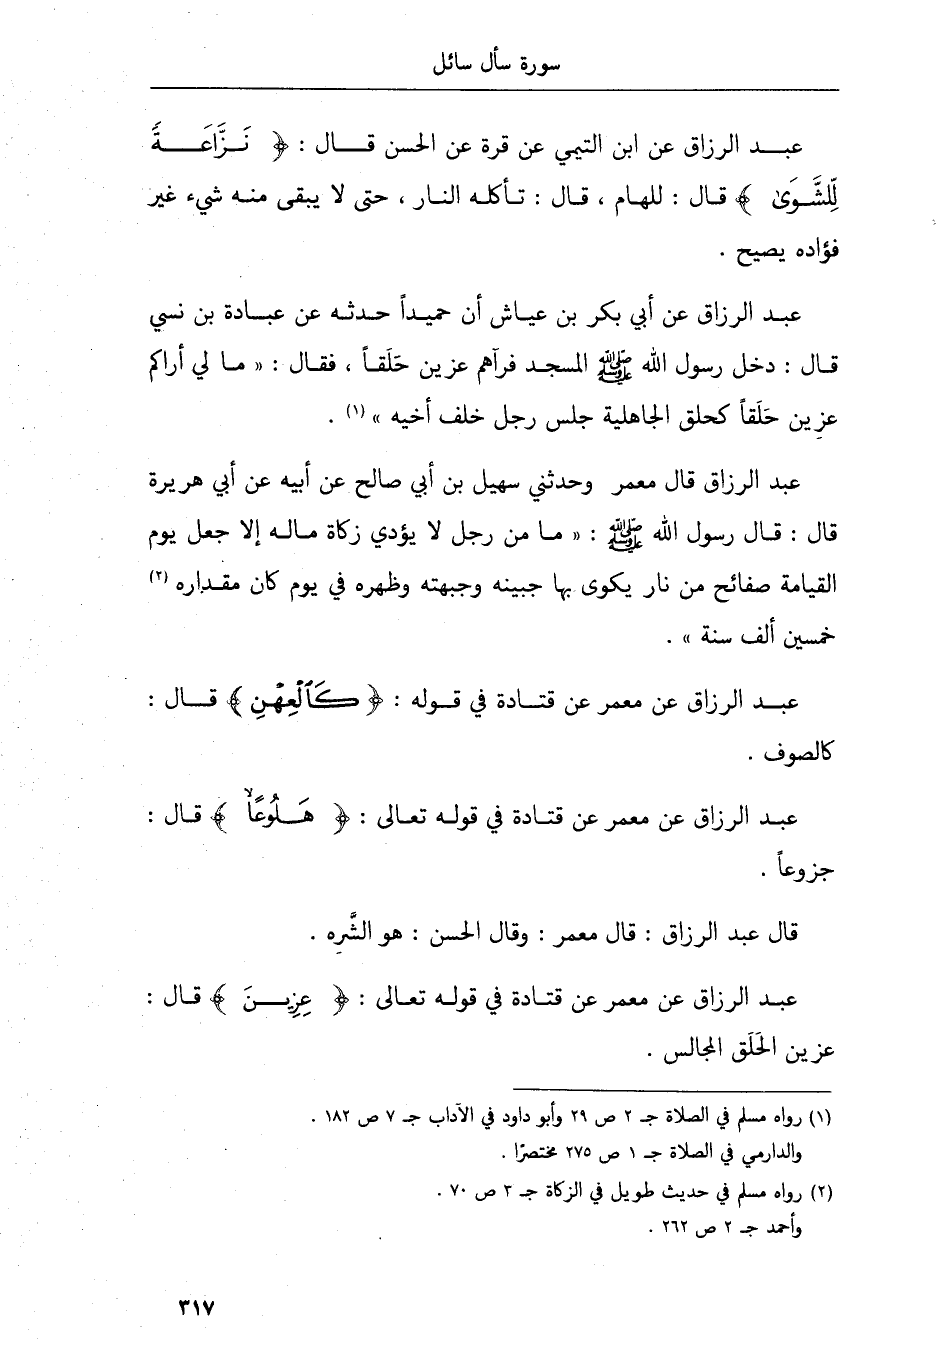 سورة سأل سائل
عبد الرزاق عن ابن التيمي عن قرة عن الحسن قال : ﴿ نَزَّاعَةً
لِّلشَّوَىٰ ﴾ قال : للهام ، قال : تأكله النار ، حتى لا يبقى منه شيء غير
فؤاده يصيح .
عبد الرزاق عن أبي بكر بن عياش أن حميداً حدثه عن عبادة بن نسي
قال : دخل رسول الله ﷺ المسجد فرآهم عزين حَلَقاً ، فقال : « ما لي أراكم
عزين حَلَقاً كحلق الجاهلية جلس رجل خلف أخيه » (١) .
عبد الرزاق قال معمر وحدثني سهيل بن أبي صالح عن أبيه عن أبي هريرة
قال : قال رسول الله ﷺ : « ما من رجل لا يؤدي زكاة ماله إلا جعل يوم
القيامة صفائح من نار يكوى بها جبينه وجبهته وظهره في يوم كان مقداره (٢)
خمسين ألف سنة » .
عبد الرزاق عن معمر عن قتادة في قوله : ﴿ كَٱلْعِهْنِ ﴾ قال :
كالصوف .
عبد الرزاق عن معمر عن قتادة في قوله تعالى : ﴿ هَلُوعًا ﴾ قال :
جزوعاً .
قال عبد الرزاق : قال معمر : وقال الحسن : هو الشَّرِه .
عبد الرزاق عن معمر عن قتادة في قوله تعالى : ﴿ عِزِينَ ﴾ قال :
عزين الحَلَق المجالس .
(١) رواه مسلم في الصلاة جـ ٢ ص ٢٩ وأبو داود في الآداب جـ ٧ ص ١٨٢ .
والدارمي في الصلاة جـ ١ ص ٢٧٥ مختصرًا .
(٢) رواه مسلم في حديث طويل في الزكاة جـ ٣ ص ٧٠ .
وأحمد جـ ٢ ص ٢٦٢ .
٣١٧